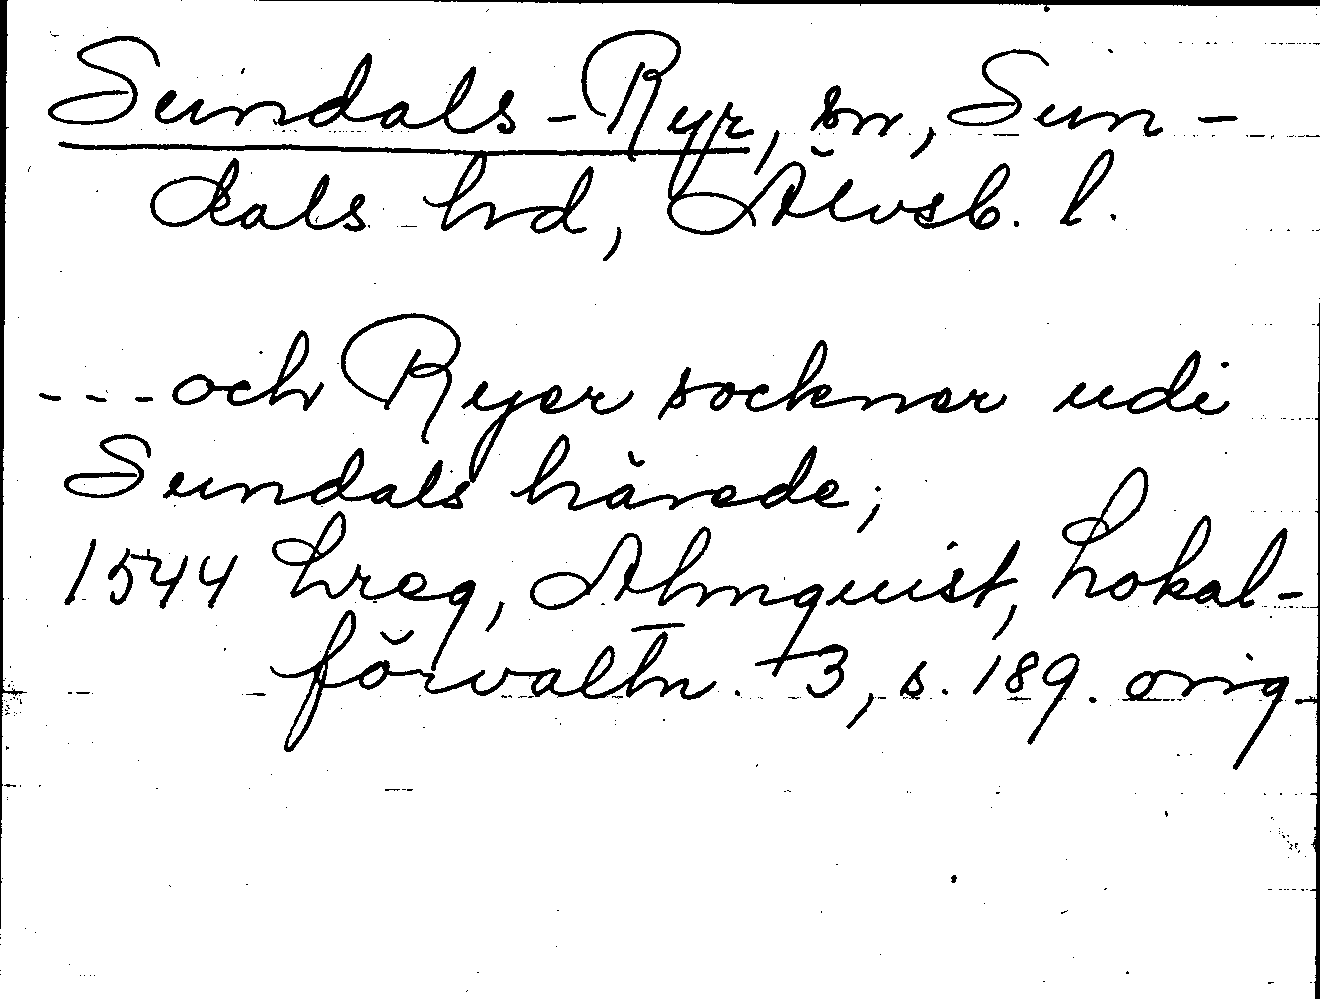 Sundals-Ryr, sn, Sun-
dals hd, Älvsb. l.
---och Ryer sockner udi
Sundals härede;
1544 hreg, Almquist, Lokal-
förvaltn. 3, s. 189. orig.